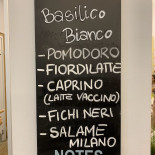 Basilico
Bianco
-POMODORO
-FIORDILATTE
-CAPRINO
(LATTE VACCINO)
-FICHI NERI
-SALAME
MILANO
NOTES